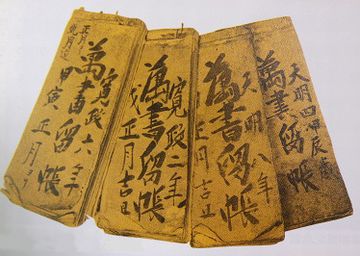 天明四甲辰歳
萬書留帳
天明八年
萬書留帳
正月吉日
寛政二年
萬書留帳
戌正月吉日
寛政六年
萬書留帳
甲寅 正月